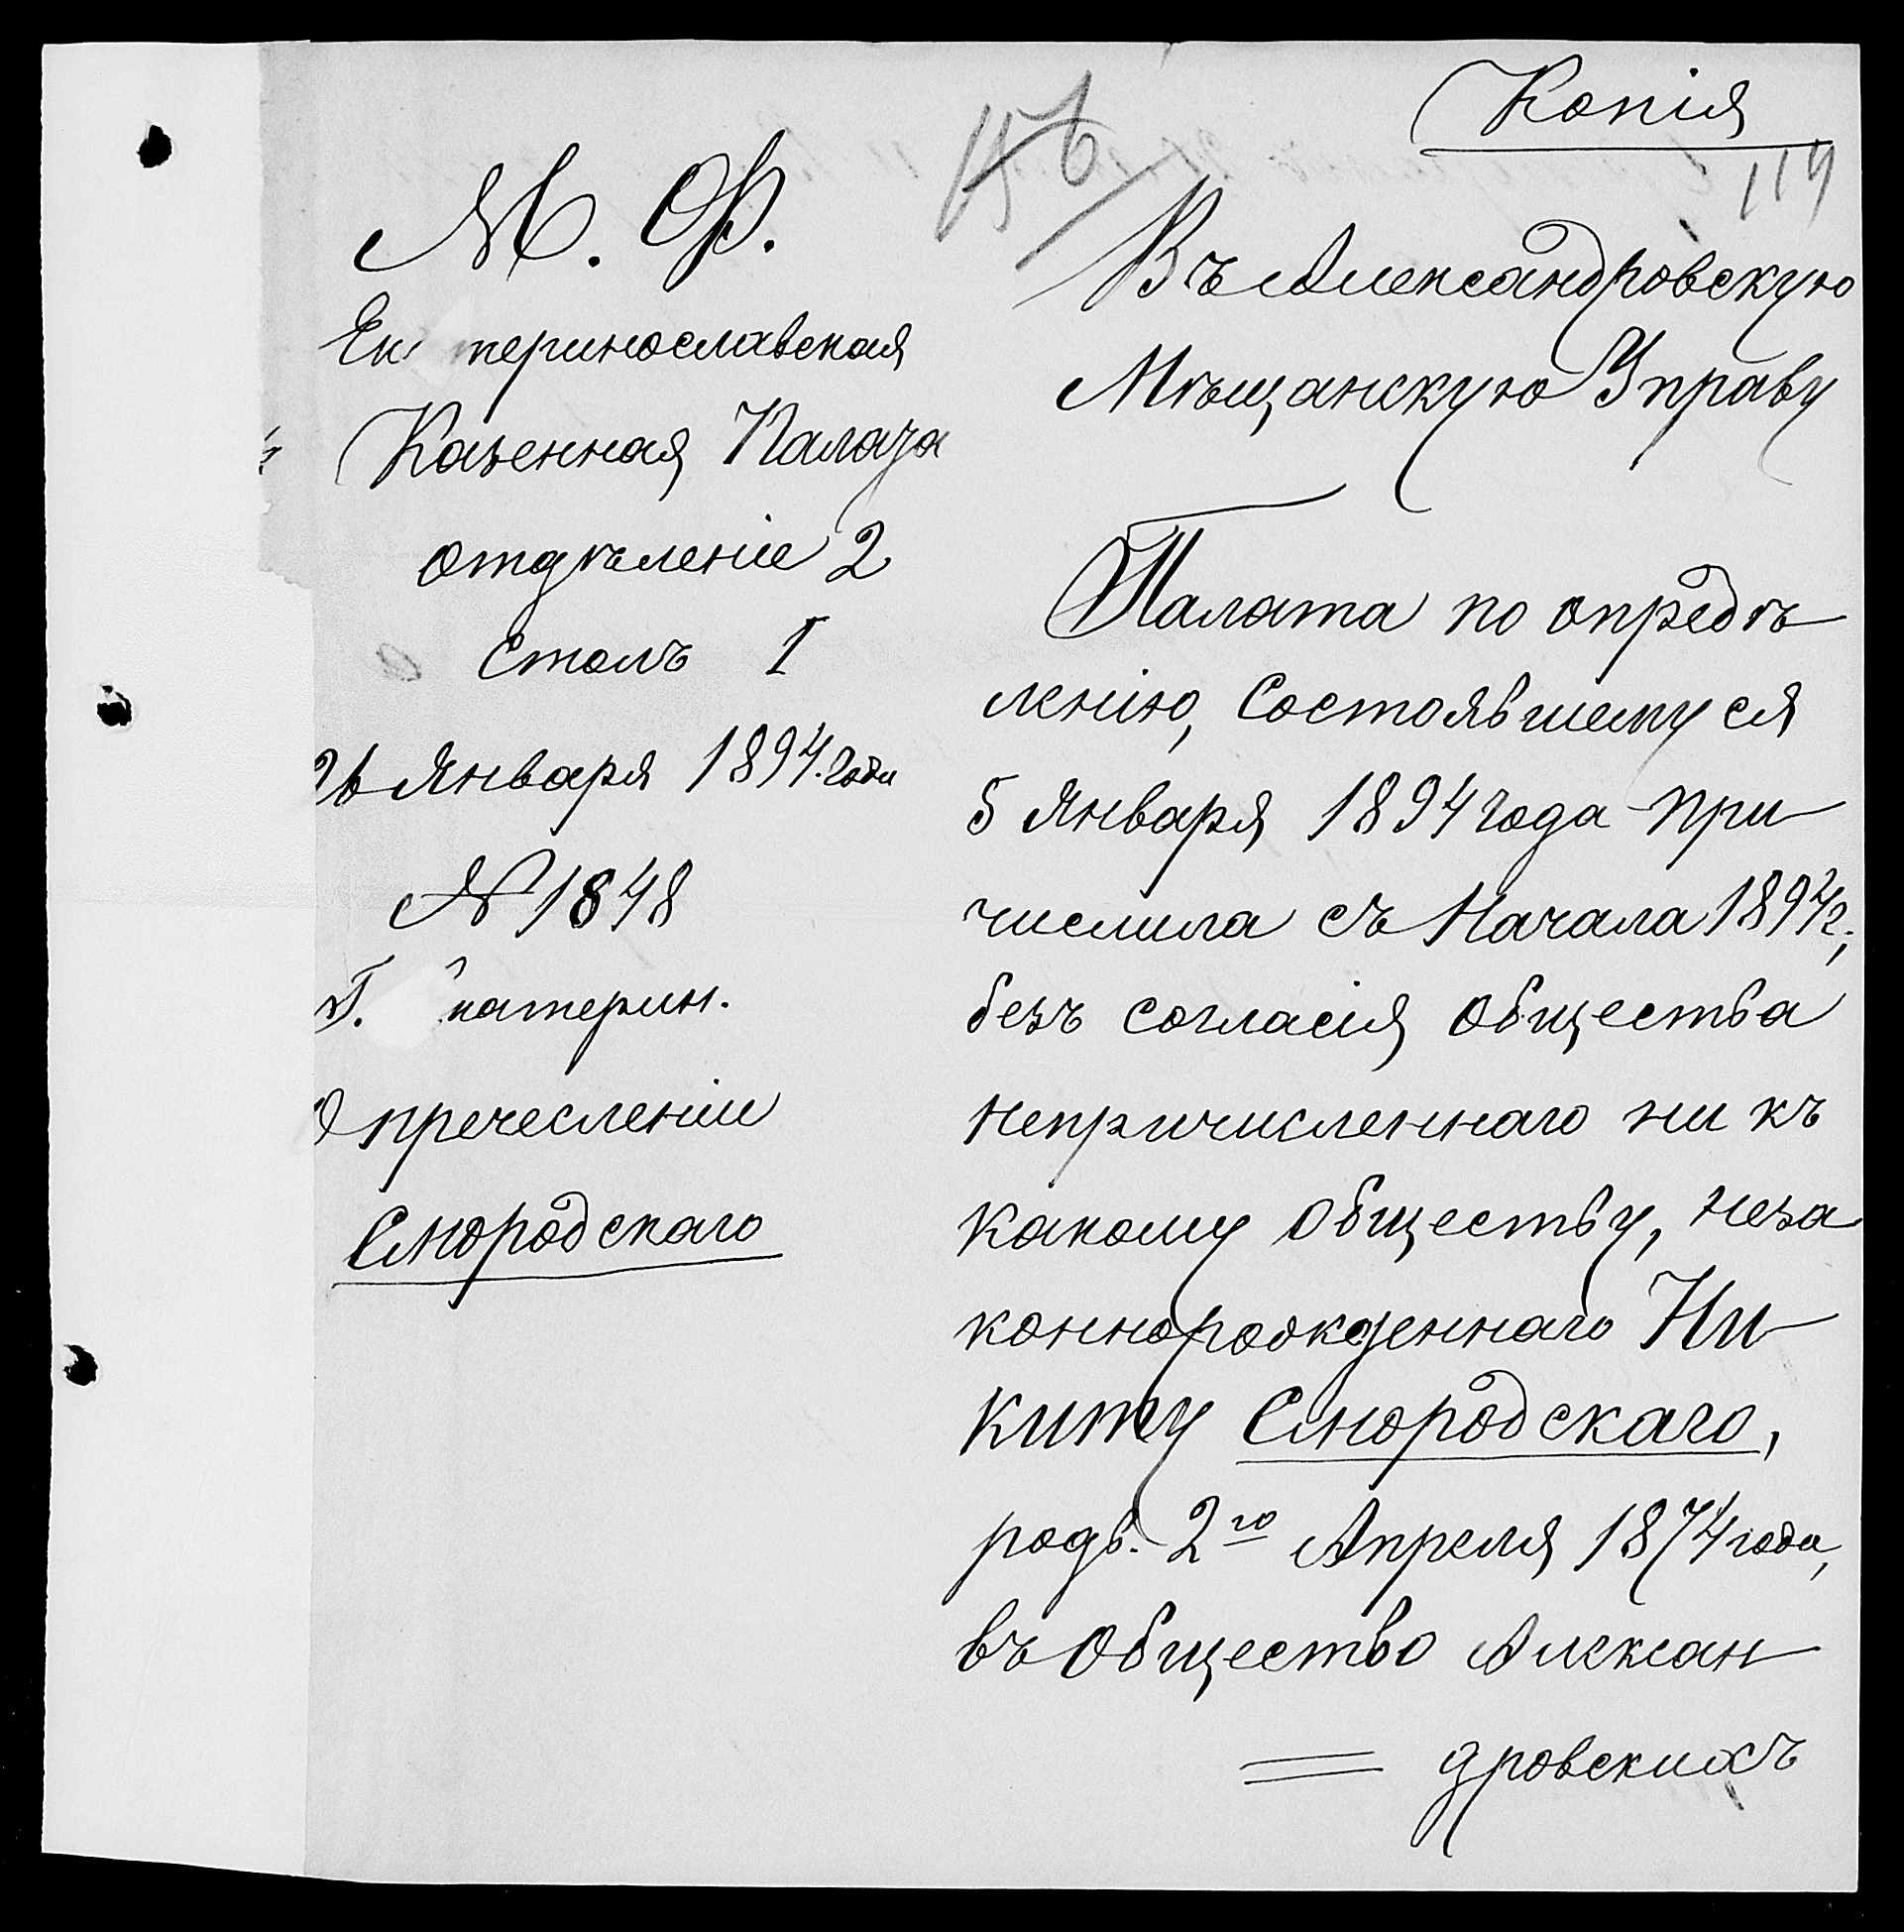 Копія
156
114
М. Ф.
Ек теринославская
Казенная Палата
отдѣленіе 2
столъ 1
26 Января 1894. года
№ 1848
Г. катерин.
О пречесленіи
Смородскаго
Въ Александровскую
Мѣщанскую Управу
Палата по опредѣ
ленію, состоявшемуся
5 Января 1894 года при
числила съ Начала 1894 г.,
безъ согласія Общества
непричисленнаго ни къ
какому Обществу, неза
коннорожденнаго Ни
киту Смородскаго,
родв. 2го Апреля 1874 года,
въ Общество Алексан
дровскихъ